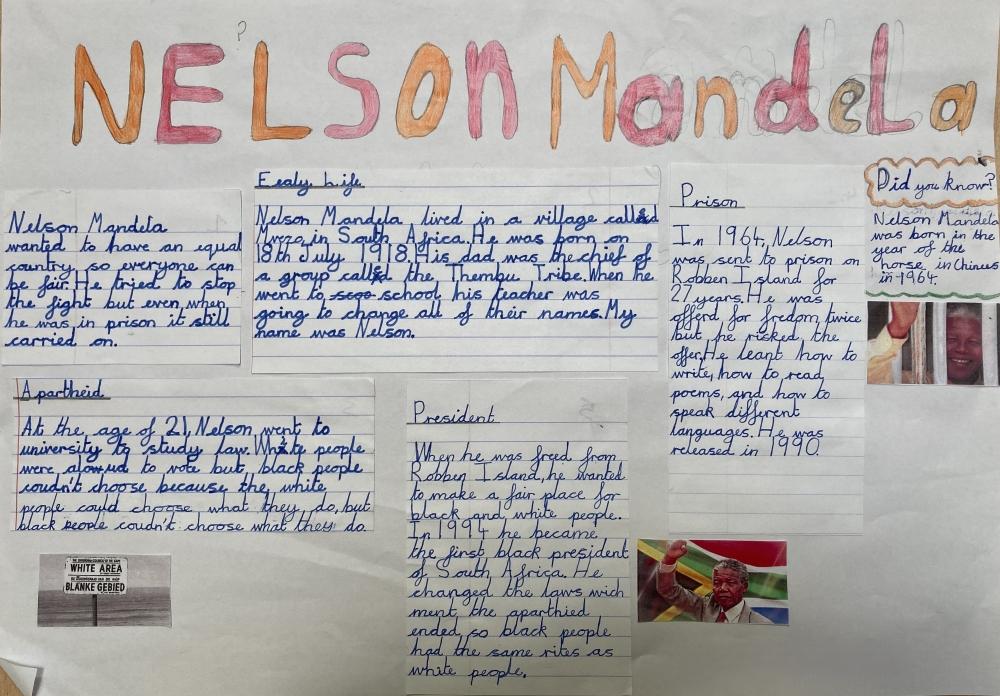 NELSON MandeLa
Nelson Mandela
wanted to have an equal
country so everyone can
be fair. He tried to stop
the fight but even when
he was in prison it still
carried on.
Ealy Life
Nelson Mandela lived in a village called
Mvezo in South Africa. He was born on
18th July 1918. His dad was the chief of
a group called the Thembu Tribe. When he
went to school his teacher was
going to change all of their names. My
name was Nelson.
Prison
In 1964, Nelson
was sent to prison on
Robben Island for
27 years. He was
offerd for fredom twice
but he risked the
offer. He leant how to
write, how to read
poems, and how to
speak different
languages. He was
released in 1990.
Did you know?
Nelson Mandela
was born in the
year of the
horse in Chinus
in 1964.
Apartheid
At the age of 21, Nelson went to
university to study law. White people
were alowud to vote but, black people
coudn't choose because the white
people could choose what they do, but
black people coudn't choose what they do.
WHITE AREA
BLANKE GEBIED
President
When he was freed from
Robben Island, he wanted
to make a fair place for
black and white people.
In 1994 he became
the first black president
of South Africa. He
changed the laws wich
ment the aparthied
ended, so black people
had the same rites as
white people.